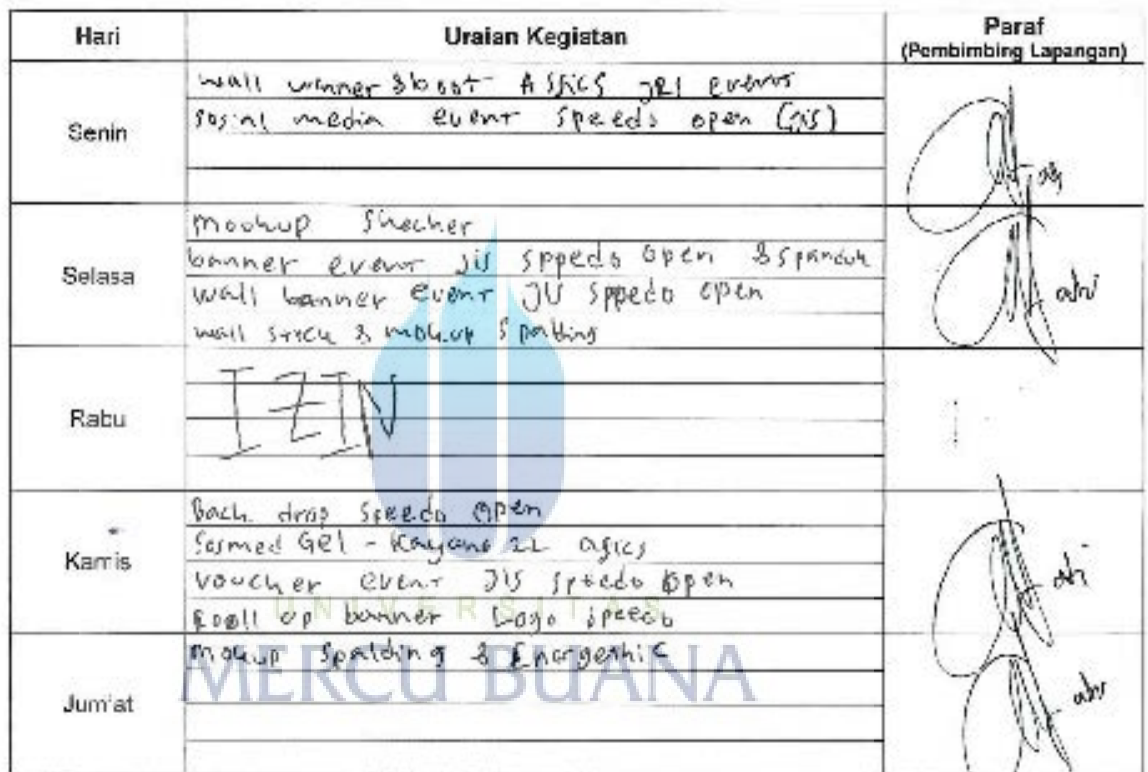 Hari Uraian Kegiatan Paraf
(Pembimbing Lapangan)
Senin
wall winner & boot ASSICS JRI event
sosial media event speedo open (jis)
Selasa
mockup
banner event jis sppedo open & spanduk
wall banner event JIS sppedo open
wall stick & mokup spalding
Rabu
IZIN
Kamis
Back drop speedo open
sosmed Gel - Kayano 22 asics
voucher event JIS speedo open
Rooll op banner Logo speedo
Jum'at
mokup spalding & Energethic
UNIVERSITAS
MERCU BUANA